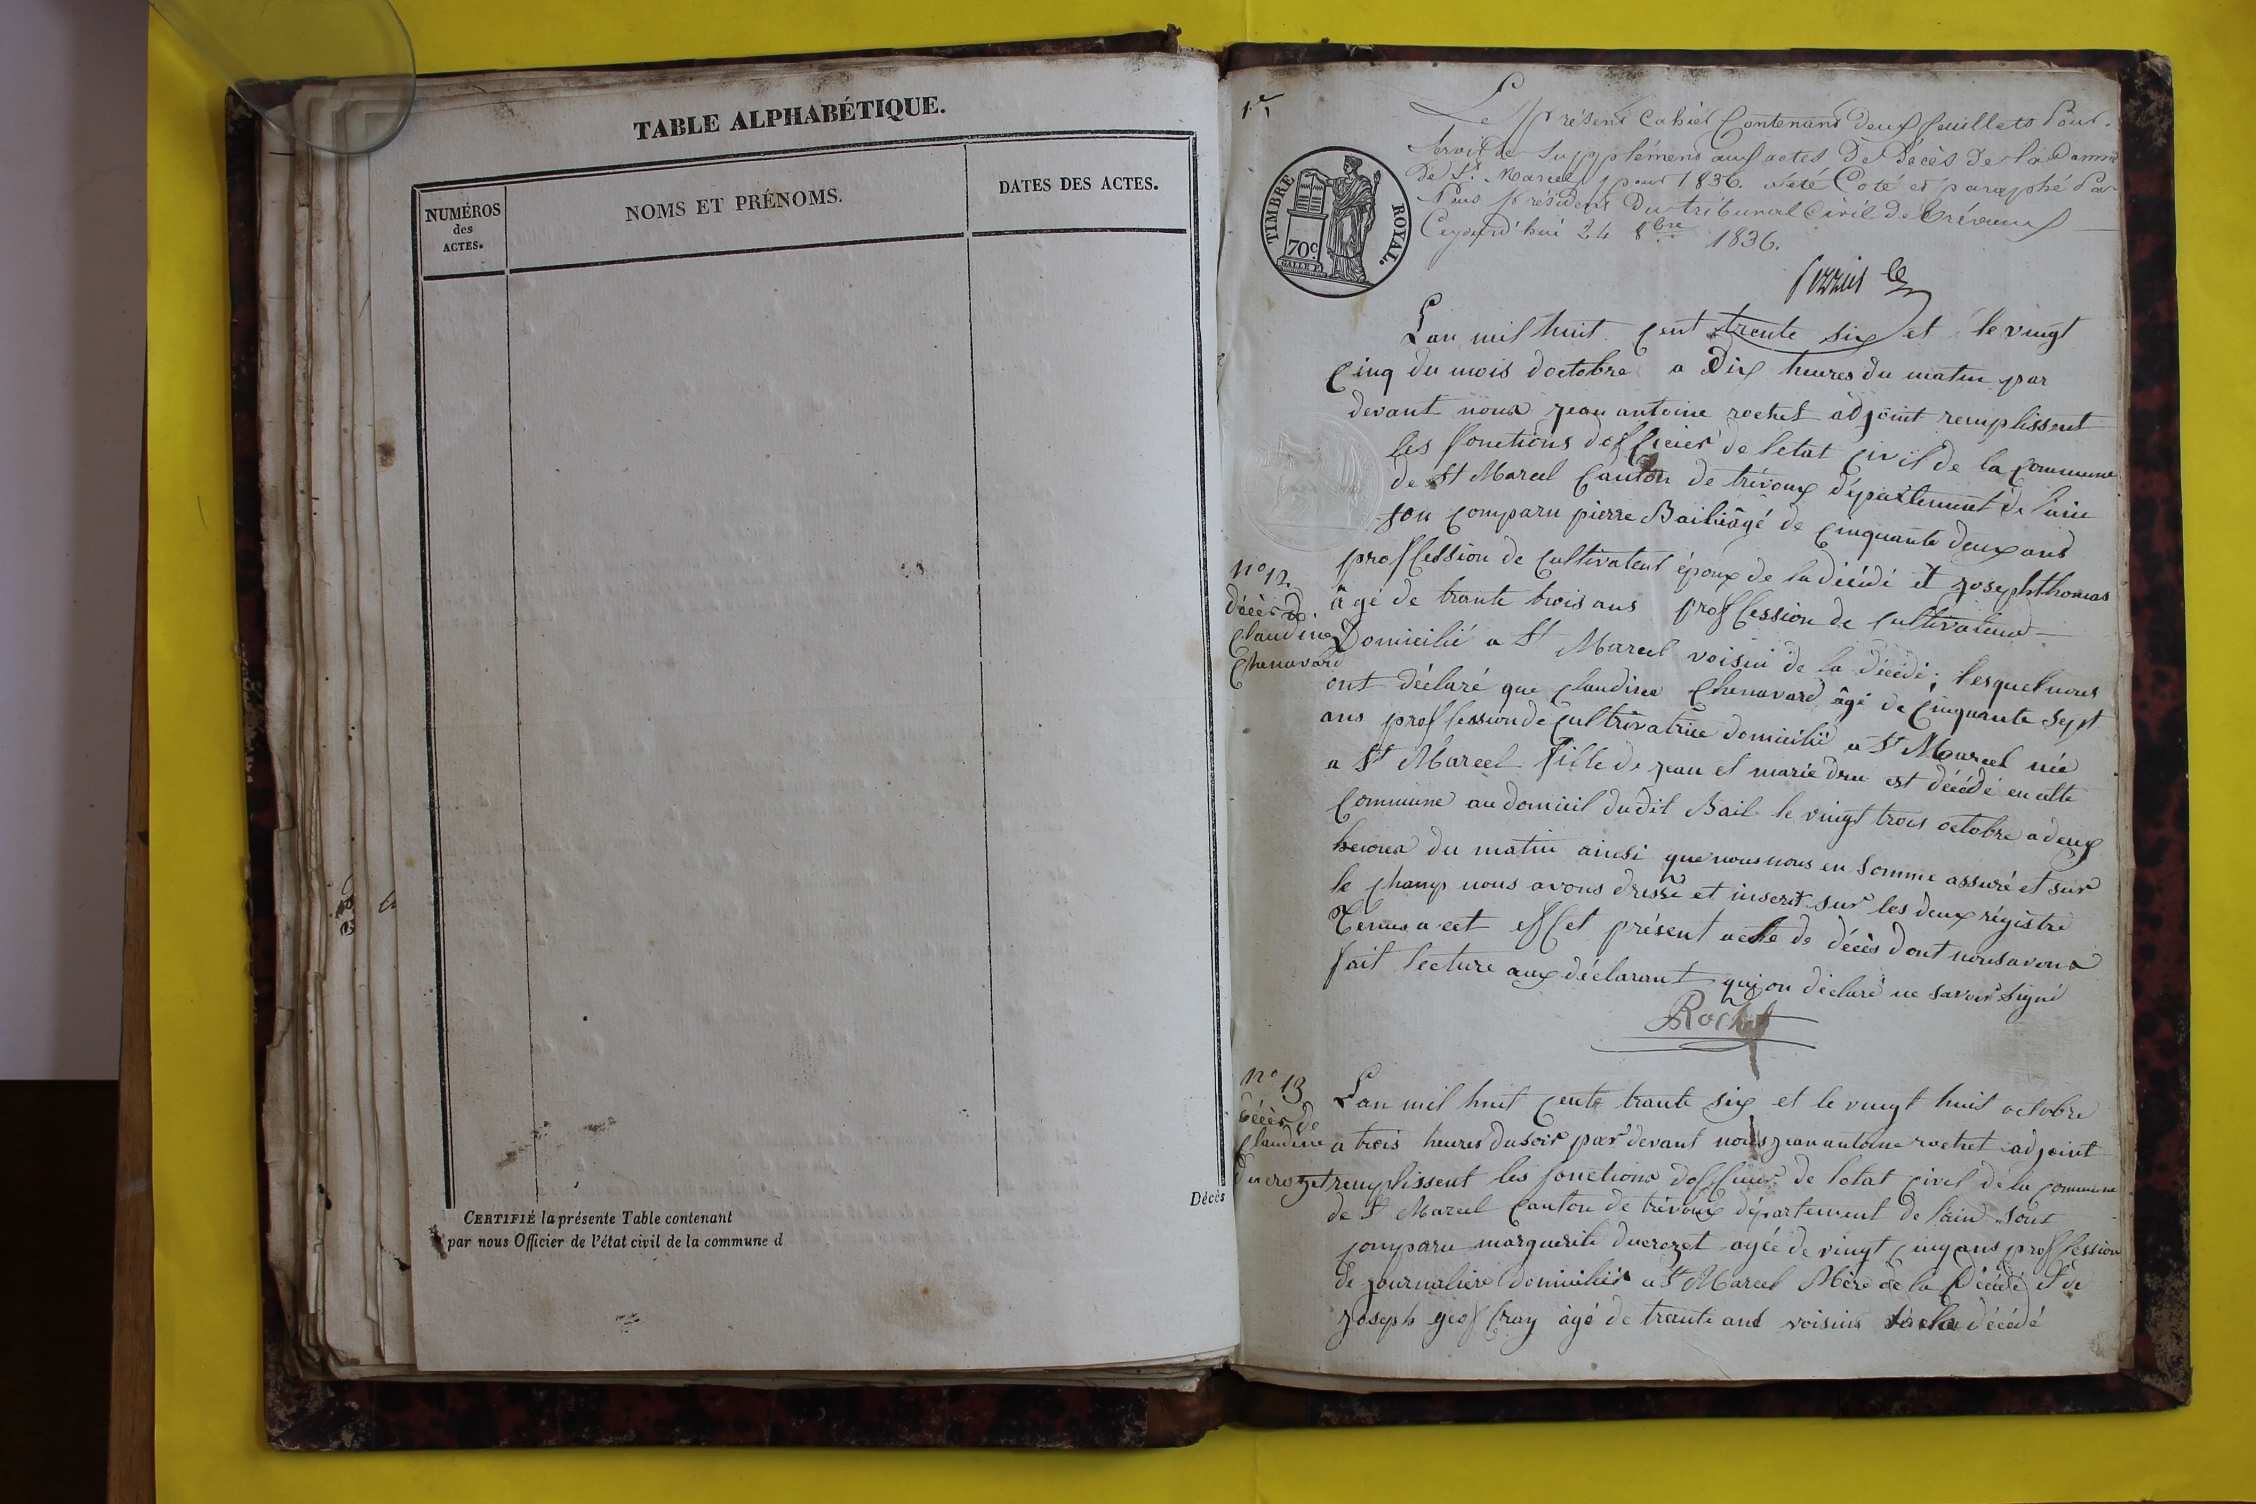 TABLE ALPHABÉTIQUE.
NUMÉROS
des
ACTES.
NOMS ET PRÉNOMS.
DATES DES ACTES.
CERTIFIÉ la présente Table contenant
par nous Officier de l'état civil de la commune d
Décès
1.er
Le présent Cahier Contenant deux feuillets Pour
Servir de Supplément aux actes De Décès de la
de St. Marcel pour 1836. a été Coté et paraphé Par
Nous Président Du tribunal Civil De Trévoux
Cejourd'hui 24 8bre 1836.
TIMBRE ROYAL.
70c.
Lan mil huit cent trente six et le vingt
Cinq du mois doctobre a Dix heures du matin par
devant nous jean antoine rochet adjoint remplissent
les fonctions dofficier de letat civil de la commune
de St Marcel Canton de trévoux département de lain
son comparu pierre Bail âgé de cinquante deux ans
proffession de cultivateur époux de la décédé et joseph thomas
âgé de trante trois ans proffession de cultivateur
Domicilié a St Marcel voisin de la décédé; lesquel nous
ont déclaré que claudine Chenavard âgé de cinquante sept
ans proffession de cultivatrice domicilié a St Marcel née
a St Marcel fille de jean et marie dru est décédé en cette
Commune au domicil dudit Bail le vingt trois octobre a deux
heures du matin ainsi que nous nous en somme assuré et sur
le champ nous avons dressé et inscrit sur les deux régistre
Tenus a cet effet présent acte de décès dont nous avons
fait lecture aux déclarant qui on déclaré ne savoir signé
Rochet
no 12.
décès de
Claudine
Chenavard
no 13
Décès de
Claudine
ducrozet
Lan mil huit cente trante six et le vingt huit octobre
a trois heures du soir par devant nous jean antoine rochet adjoint
remplissent les fonctions dofficier de letat civil de la commune
de St Marcel Canton de trévoux département de lain sont
comparu marguerite ducrozet agée de vingt cinq ans proffession
de journaliere domiciliée a St Marcel Mère de la Décédé et de
joseph geoffray âgé de trente ans voisins de la décédé